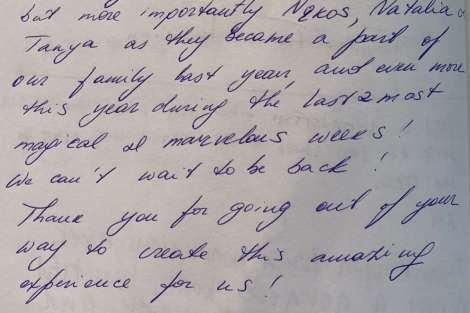 but more importantly Nekos, Natalia &
Tanya as they became a part of
our family last year, and even more
this year during the last 2 most
magical & marvelous weeks!
We can't wait to be back!
Thank you for going out of your
way to create this amazing
experience for us!